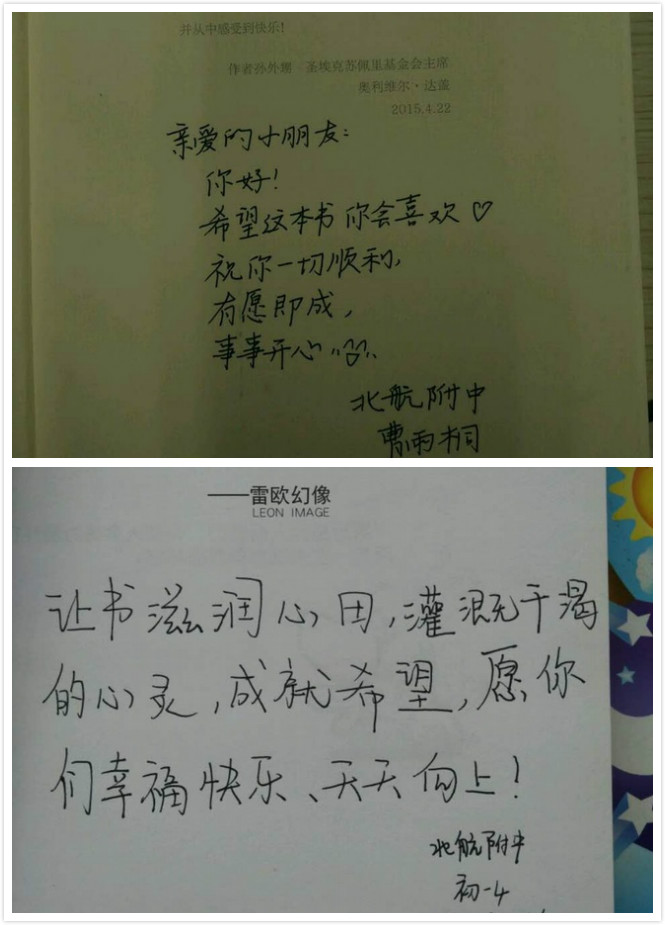 并从中感受到快乐!
作者孙外甥·圣埃克苏佩里基金会主席
奥利维尔·达盖
2015.4.22
亲爱的小朋友:
你好!
希望这本书你会喜欢♡
祝你一切顺利,
有愿即成,
事事开心
北航附中
曹雨桐
——雷欧幻像
LEON IMAGE
让书滋润心田,灌溉干渴
的心灵,成就希望,愿你
们幸福快乐、天天向上!
北航附中
初一4